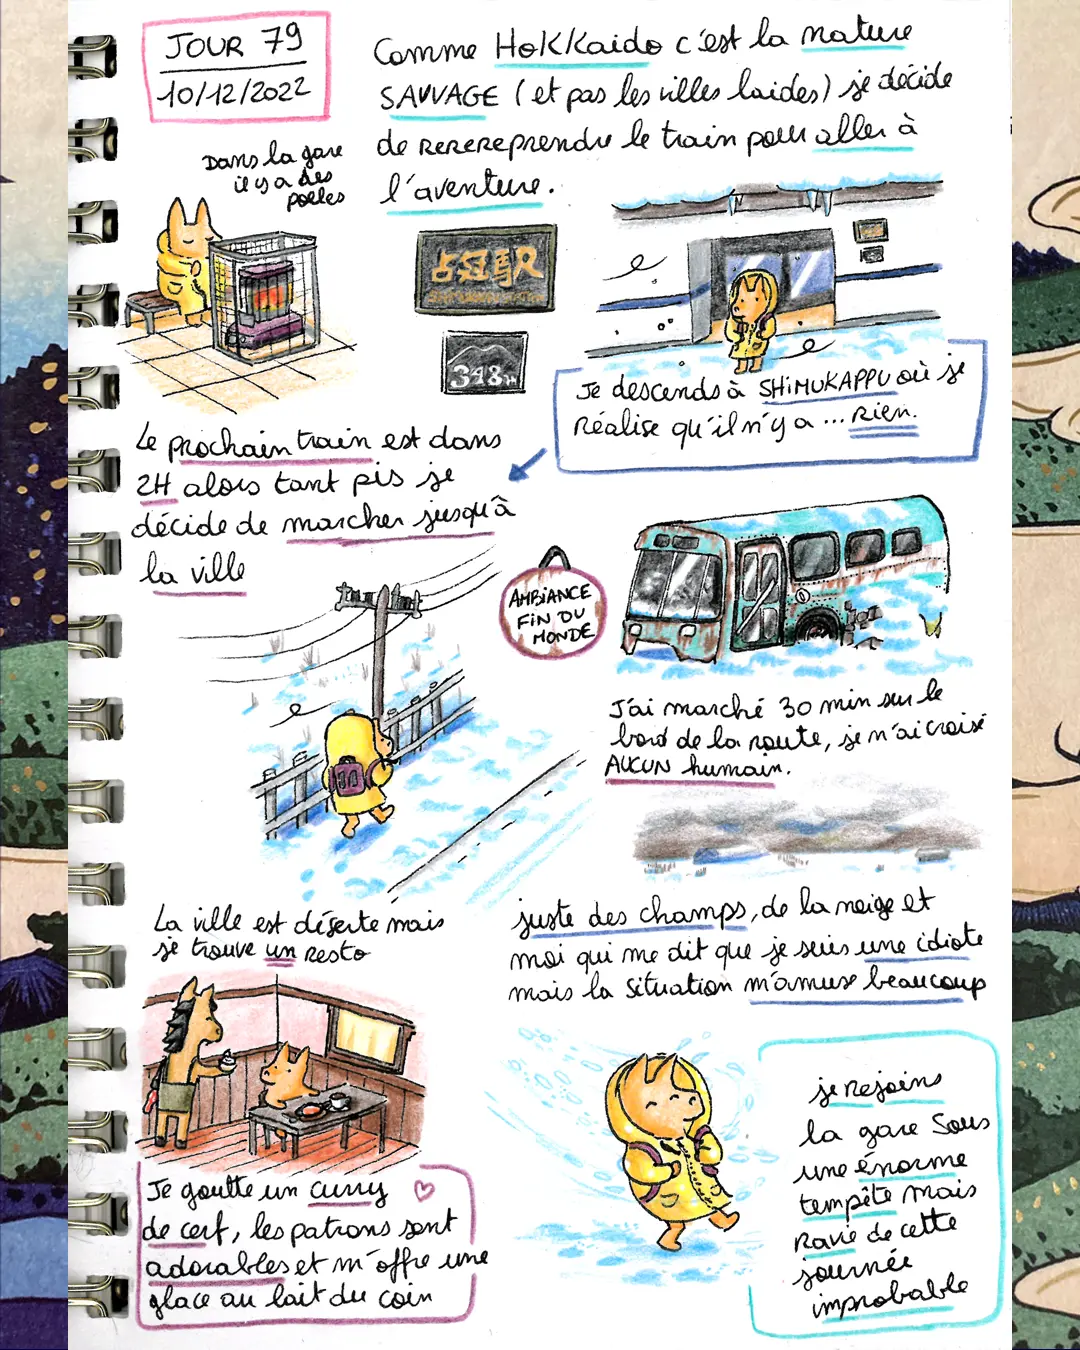 JOUR 79
10/12/2022
Comme Hokkaido c'est la nature
SAUVAGE (et pas les villes laides) je décide
de rerereprendre le train pour aller à
l'aventure.
Dans la gare
il y a des
poêles
占冠駅
348m
Je descends à SHIMUKAPPU où je
Réalise qu'il n'y a ... Rien.
Le prochain train est dans
2H alors tant pis je
décide de marcher jusqu'à
la ville
AMBIANCE
FIN DU
MONDE
J'ai marché 30 min sur le
bord de la route, je n'ai croisé
AUCUN humain.
juste des champs, de la neige et
moi qui me dit que je suis une idiote
mais la situation m'amuse beaucoup
La ville est déserte mais
je trouve un resto
Je goutte un curry
de cerf, les patrons sont
adorables et m'offre une
glace au lait du coin
je rejoins
la gare sous
une énorme
tempête mais
Ravie de cette
journée
improbable